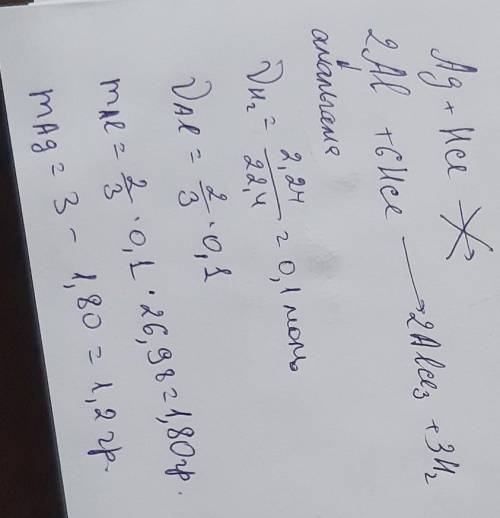 Ag + HCl ↛
2Al + 6HCl → 2AlCl₃ + 3H₂
↓
амальгама
ν H₂ = 2,24 / 22,4 = 0,1 моль
ν Al = 2/3 · 0,1
m Al = 2/3 · 0,1 · 26,98 = 1,80 гр.
m Ag = 3 - 1,80 = 1,2 гр.